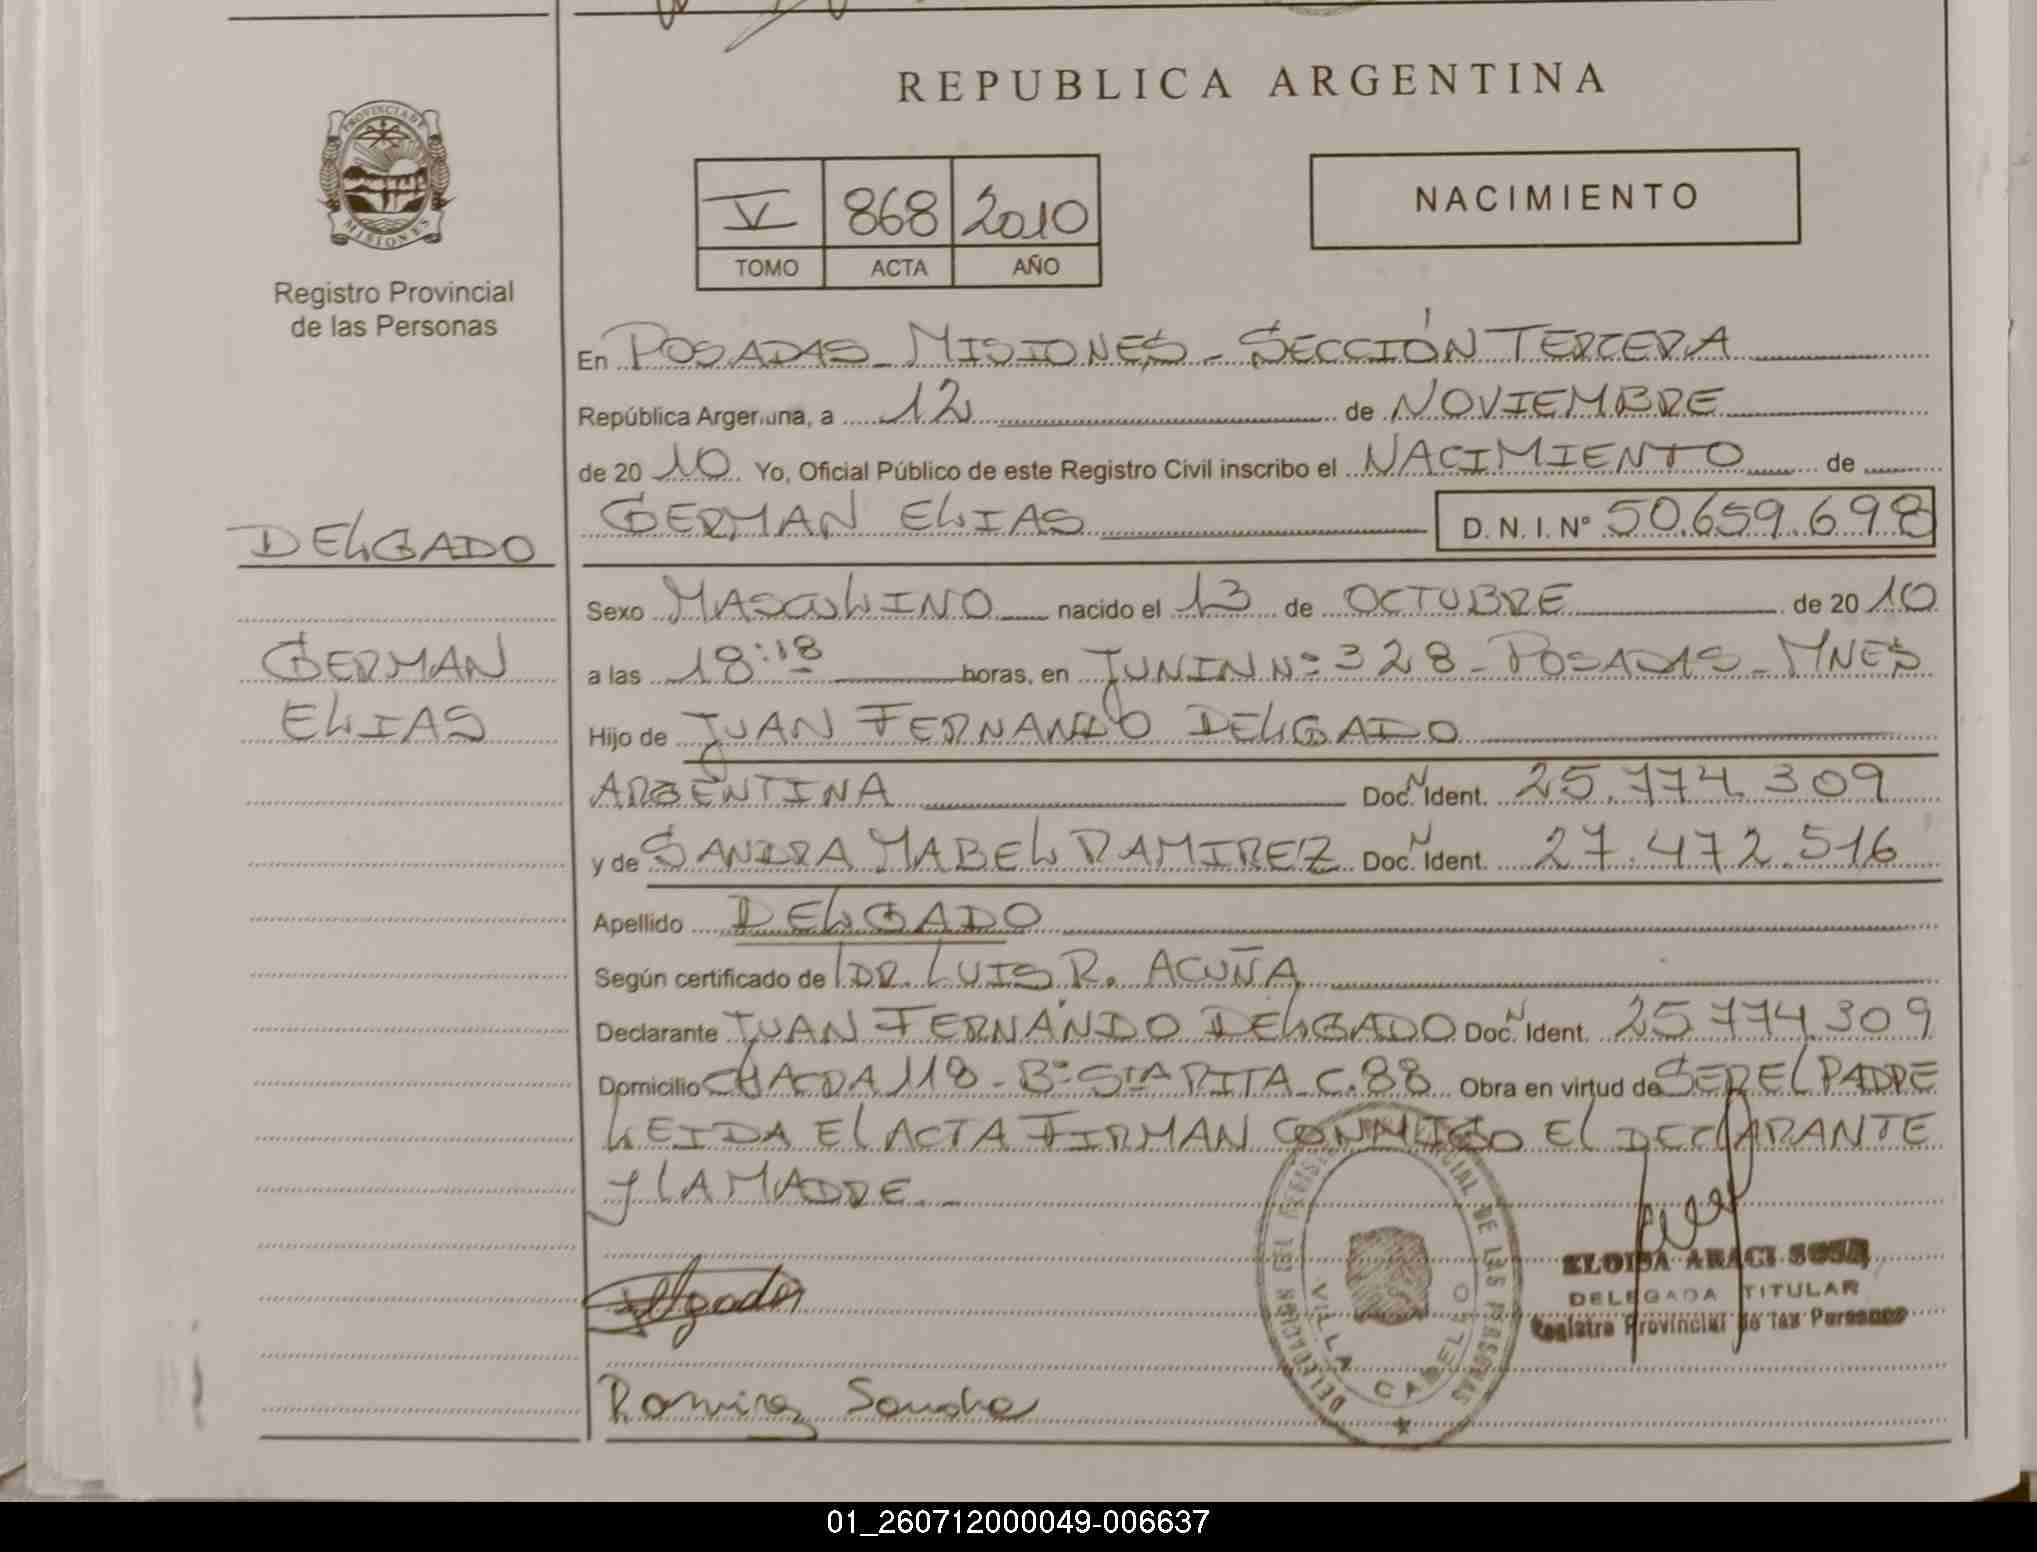 REPUBLICA ARGENTINA
PROVINCIA DE
MISIONES
Registro Provincial
de las Personas
V 868 2010
TOMO ACTA AÑO
NACIMIENTO
En POSADAS - MISIONES - SECCIÓN TERCERA
República Argentina, a 12 de NOVIEMBRE
de 20 10 Yo, Oficial Público de este Registro Civil inscribo el NACIMIENTO de
GERMAN ELIAS D. N. I. Nº 50.659.698
DELGADO
GERMAN
ELIAS
Sexo MASCULINO nacido el 13 de OCTUBRE de 20 10
a las 18:18 horas, en JUNIN Nº 328 - POSADAS - MNES
Hijo de JUAN FERNANDO DELGADO
ARGENTINA Doc. N Ident. 25.774.309
y de SANDRA MABEL RAMIREZ Doc. N Ident. 27.472.516
Apellido DELGADO
Según certificado de DR. LUIS R. ACUÑA
Declarante JUAN FERNANDO DELGADO Doc. N Ident. 25.774.309
Domicilio CHACRA 118 - Bº STA RITA C. 88 Obra en virtud de SER EL PADRE
LEIDA EL ACTA FIRMAN CONMIGO EL DECLARANTE
Y LA MADRE. -
Delgado
Ramirez Sandra
DELEGACION DEL REGISTRO PROVINCIAL DE LAS PERSONAS
VILLA CABELLO
ELOISA ARACI SOSA
DELEGADA TITULAR
Registro Provincial de las Personas
01_260712000049-006637